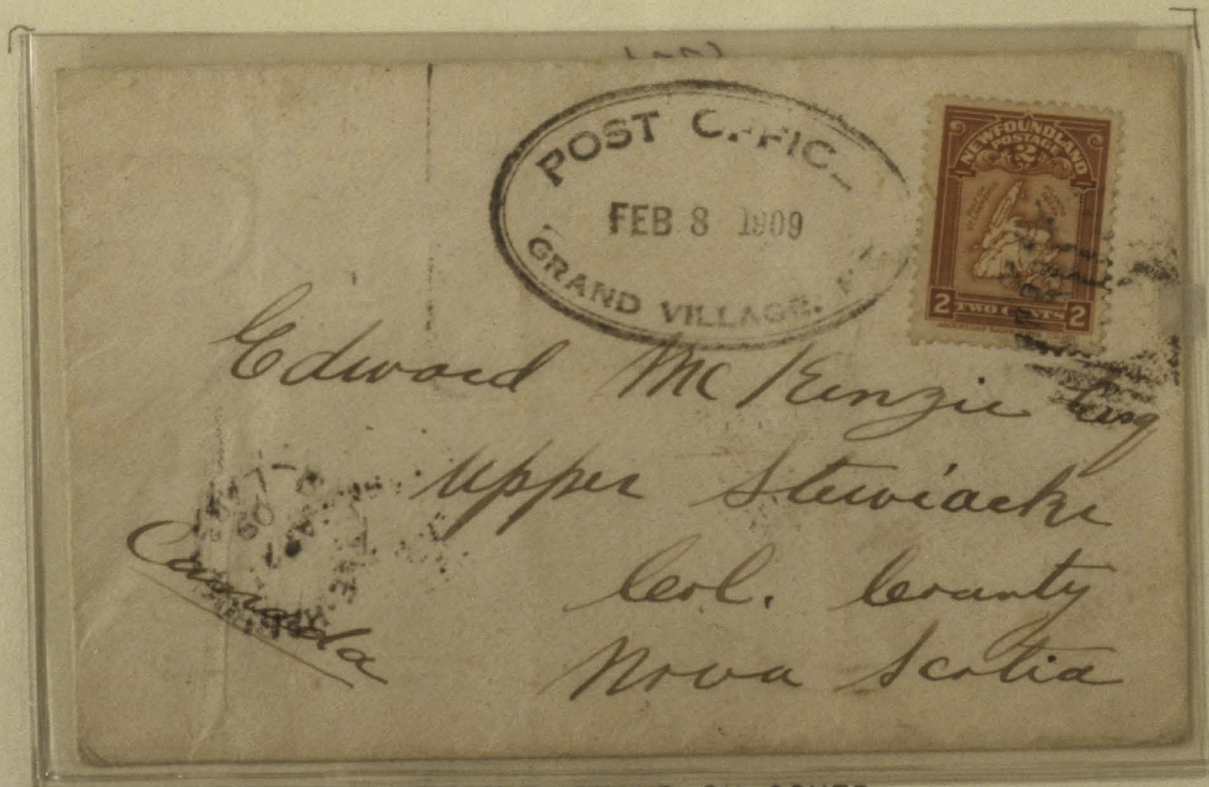 POST OFFIC
FEB 8 1909
GRAND VILLAGE,
NEWFOUNDLAND
POSTAGE
2
2 TWO CENTS 2
Edward McKenzie Esq
Upper Stewiacke
Col. County
Nova Scotia
Canada